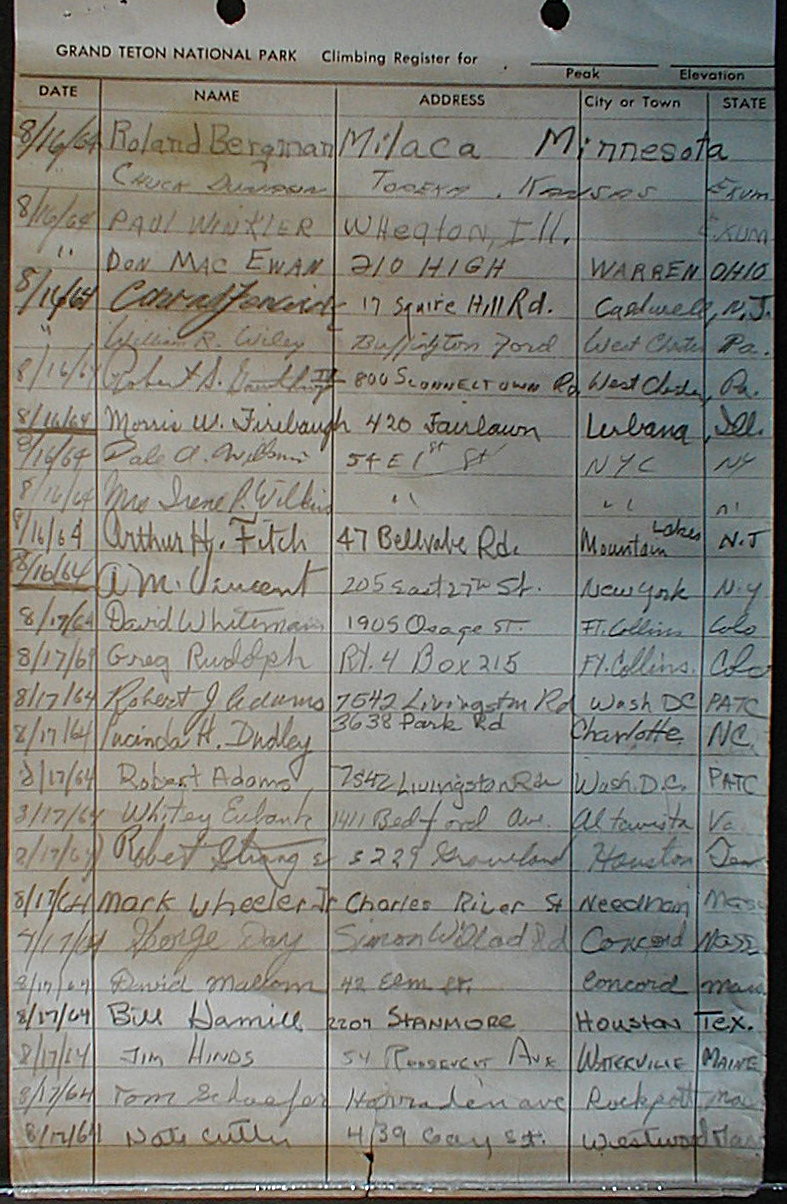 GRAND TETON NATIONAL PARK Climbing Register for
Peak Elevation
DATE NAME ADDRESS City or Town STATE
8/16/64 Roland Bergman Milaca Minnesota
" Chuck Topeka, Kansas Exum
8/16/64 PAUL WINKLER Wheaton, Ill. Exum
" DON MAC EWAN 210 HIGH WARREN OHIO
8/16/64 17 Squire Hill Rd. Caldwell, N.J.
" William R. Wiley Buffington Ford West Chester Pa.
8/16/64 Robert S. III 800 SCONNELTOWN Rd West Chester, Pa.
8/16/64 Morris W. Firebaugh 420 Fairlawn Urbana, Ill.
8/16/64 Dale A. Wilkins 54 E 1st St NYC NY
8/16/64 Mrs Irene P. Wilkins " " "
8/16/64 Arthur H. Fitch 47 Bellvale Rd. Mountain Lakes N.J
8/16/64 A M. Vincent 205 East 27th St. New York N.Y
8/17/64 David Whiteman 1905 Osage ST. FT. Collins Colo
8/17/64 Greg Rudolph Rt. 4 Box 215 Ft. Collins. Colo
8/17/64 Robert J Adams 7542 Livingston Rd Wash DC PATC
8/17/64 Lucinda H. Dudley 3638 Park Rd Charlotte NC
8/17/64 Robert Adams 7542 Livingston Rd. Wash. D.C. PATC
8/17/64 Whitey Eubank 1411 Bedford Ave. Altavista Va
8/17/64 Robert Strange 5229 Houston Tex
8/17/64 Mark Wheeler Jr Charles River St Needham Mass
8/17/64 George Day Simon Willard Rd Concord Mass
8/17/64 David Malcom 42 Elm St. Concord Mass.
8/17/64 Bill Hamill 2207 STANMORE HOUSTON Tex.
8/17/64 JIM HINDS 54 ROOSEVELT AVE WATERVILLE MAINE
8/17/64 Tom Schaefer Harraden ave Rockport Mass
8/17/64 Nate Cutler 439 Gay St. Westwood Mass